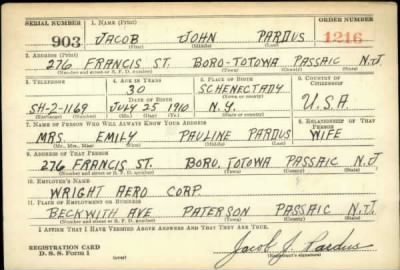 SERIAL NUMBER 1. NAME (Print) ORDER NUMBER
903 JACOB JOHN PARDUS 1216
(First) (Middle) (Last)
2. ADDRESS (Print)
276 FRANCIS ST. BORO-TOTOWA PASSAIC N.J.
(Number and street or R. F. D. number) (Town) (County) (State)
3. TELEPHONE 4. AGE IN YEARS 5. PLACE OF BIRTH 6. COUNTRY OF CITIZENSHIP
30 SCHENECTADY
DATE OF BIRTH (Town or county)
SH-2-1169 JULY 25 1910 N.Y. U.S.A.
(Exchange) (Number) (Mo.) (Day) (Yr.) (State or country)
7. NAME OF PERSON WHO WILL ALWAYS KNOW YOUR ADDRESS 8. RELATIONSHIP OF THAT PERSON
MRS. EMILY PAULINE PARDUS WIFE
(Mr., Mrs., Miss) (First) (Middle) (Last)
9. ADDRESS OF THAT PERSON
276 FRANCIS ST. BORO. TOTOWA PASSAIC N.J
(Number and street or R. F. D. number) (Town) (County) (State)
10. EMPLOYER'S NAME
WRIGHT AERO CORP.
11. PLACE OF EMPLOYMENT OR BUSINESS
BECKWITH AVE PATERSON PASSAIC N.J.
(Number and street or R. F. D. number) (Town) (County) (State)
I AFFIRM THAT I HAVE VERIFIED ABOVE ANSWERS AND THAT THEY ARE TRUE.
REGISTRATION CARD
D. S. S. Form 1
(over)
Jacob J. Pardus
(Registrant's signature)